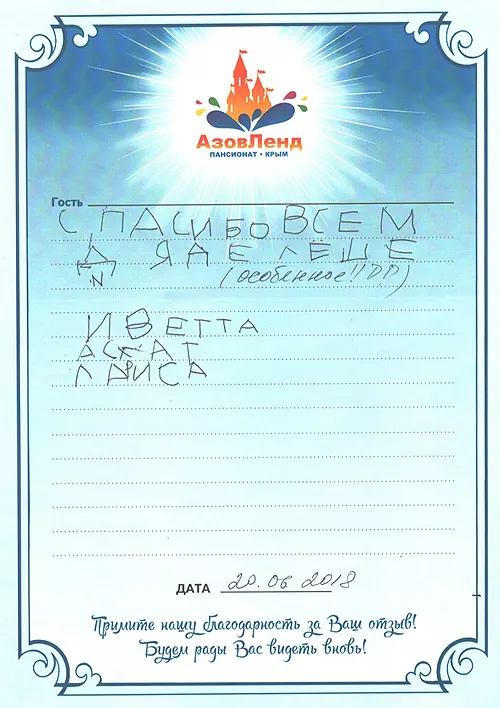 АзовЛенд
ПАНСИОНАТ • КРЫМ
Гость
СПАСИБО ВСЕМ
Д ЯДЕ ЛЕШЕ
И
(особенное!!)
ИВЕТТА
АСКАТ
ЛАРИСА
ДАТА 20.06 2018
Примите нашу благодарность за Ваш отзыв!
Будем рады Вас видеть вновь!